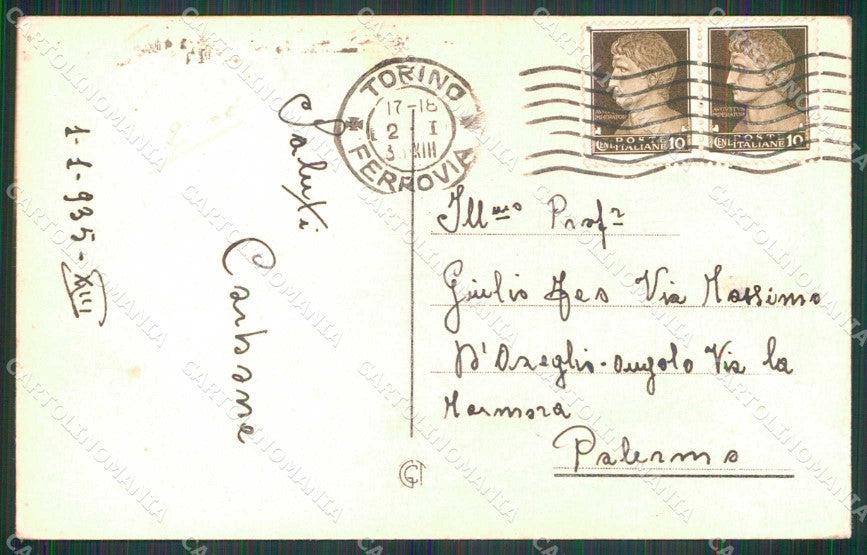 1-1-935-XIII
Saluti
TORINO
17-18
2 I
XIII
FERROVIA
POSTE ITALIANE
CENT. 10
POSTE ITALIANE
CENT. 10
Ill.mo Prof.r
Giulio Via Massimo
D'Azeglio-angolo Via la
Marmora
Palermo
CARTOLINOMANIA